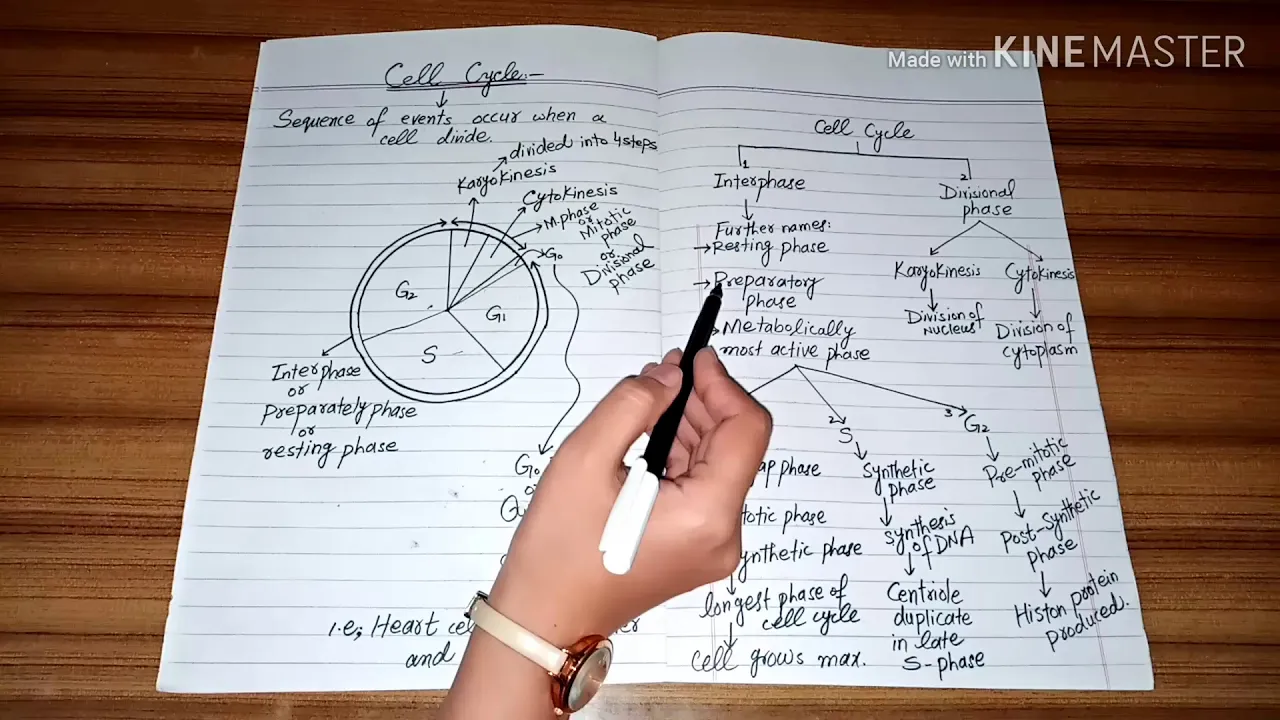 Made with KINEMASTER
Cell Cycle:-
Sequence of events occur when a
cell divide.
divided into 4 steps
Karyokinesis
Cytokinesis
M.phase
or
Mitotic
phase
or
Divisional
phase
G0
G2
G1
S
Interphase
or
Preparately phase
or
resting phase
G0
i.e; Heart
and
Cell Cycle
1
Interphase
Further names:
Resting phase
Preparatory
phase
Metabolically
most active phase
2
Divisional
phase
Karyokinesis
Division of
nucleus
Cytokinesis
Division of
cytoplasm
phase
phase
phase
longest phase of
cell cycle
Cell grows max.
2
S
Synthetic
phase
Synthesis
of DNA
Centriole
duplicate
in late
S-phase
3
G2
Pre-mitotic
phase
Post-Synthetic
phase
Histon protein
produced.